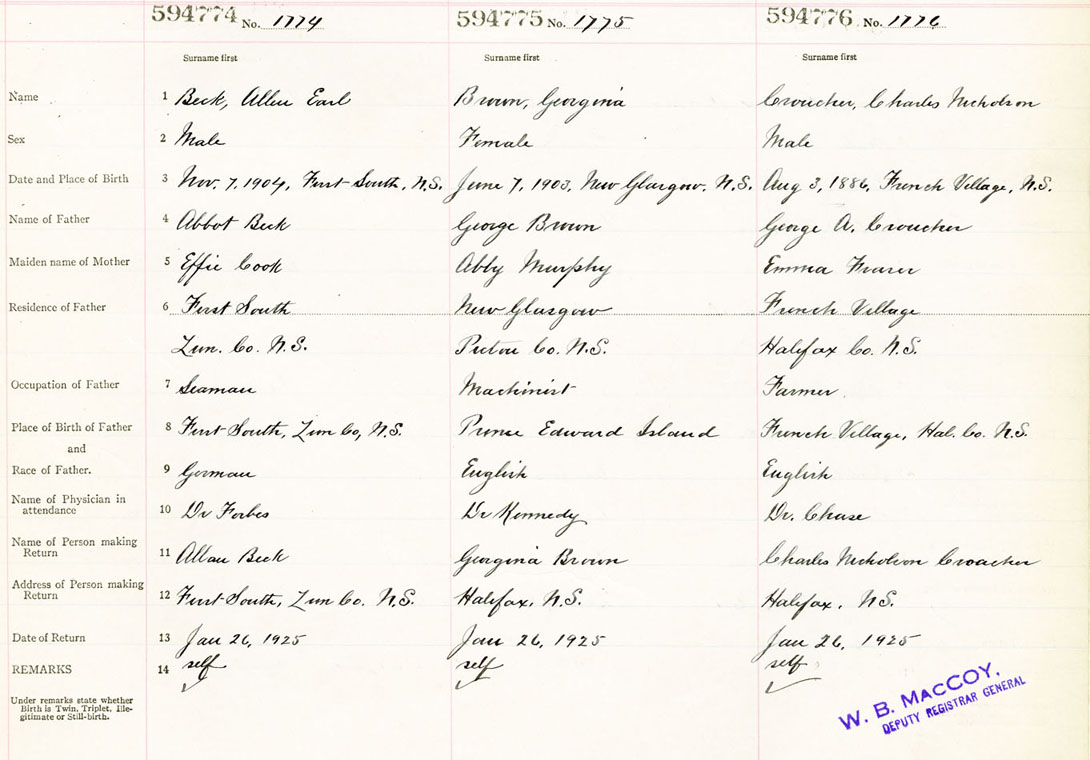 594774 No. 1774 594775 No. 1775 594776 No. 1776
Surname first Surname first Surname first
Name 1 Beck, Allen Earl Brown, Georgina Croucher, Charles Nicholson
Sex 2 Male Female Male
Date and Place of Birth 3 Nov. 7, 1904, First South, N.S. June 7, 1903, New Glasgow, N.S. Aug 3, 1886, French Village, N.S.
Name of Father 4 Abbot Beck George Brown George A. Croucher
Maiden name of Mother 5 Effie Cook Abby Murphy Emma Fraser
Residence of Father 6 First South New Glasgow French Village
Lun. Co. N.S. Pictou Co. N.S. Halifax Co. N.S.
Occupation of Father 7 Seaman Machinist Farmer
Place of Birth of Father 8 First South, Lun Co, N.S. Prince Edward Island French Village, Hal. Co. N.S.
and
Race of Father. 9 German English English
Name of Physician in
attendance 10 Dr Forbes Dr Kennedy Dr. Chase
Name of Person making
Return 11 Allan Beck Georgina Brown Charles Nicholson Croucher
Address of Person making
Return 12 First South, Lun Co. N.S. Halifax, N.S. Halifax, N.S.
Date of Return 13 Jan 26, 1925 Jan 26, 1925 Jan 26, 1925
REMARKS 14 self self self
Under remarks state whether
Birth is Twin, Triplet, Ille-
gitimate or Still-birth.
W. B. MACCOY,
DEPUTY REGISTRAR GENERAL